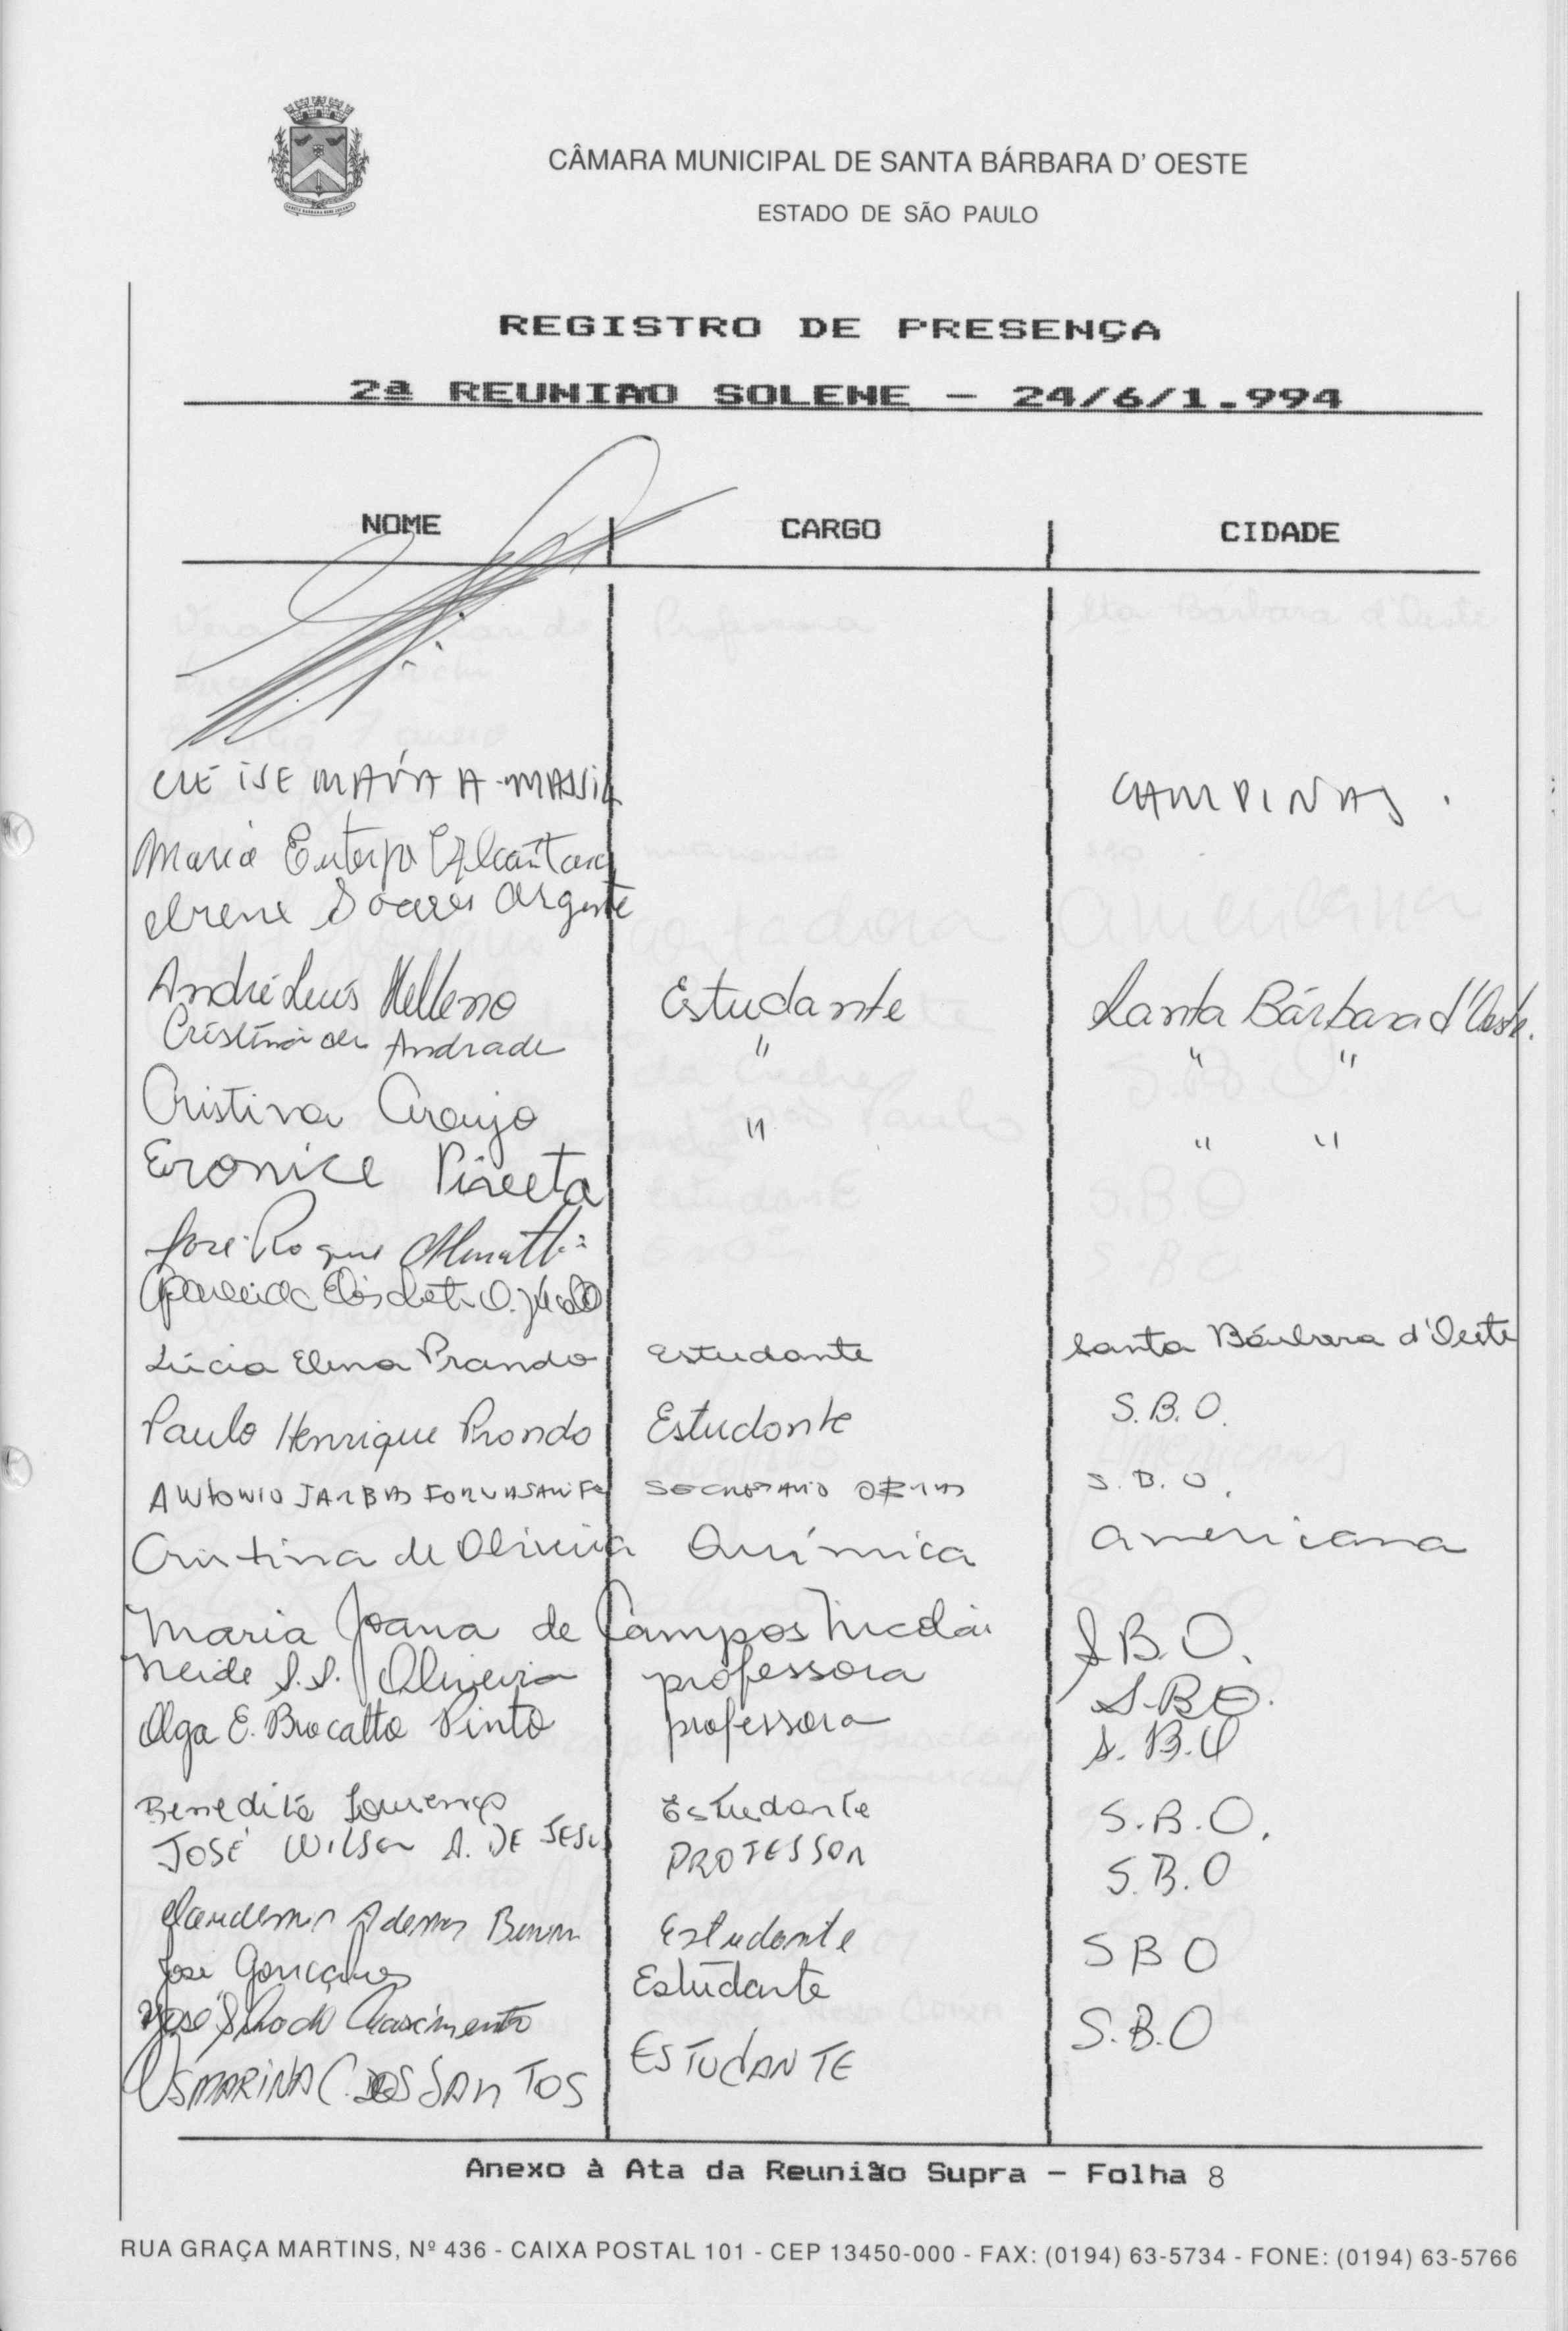 CÂMARA MUNICIPAL DE SANTA BÁRBARA D' OESTE
ESTADO DE SÃO PAULO
REGISTRO DE PRESENÇA
2ª REUNIAO SOLENE - 24/6/1.994
NOME CARGO CIDADE
CAMPINAS.
Maria Euterpe Alcantara
Irene Soares
André Luís Helleno Estudante Santa Bárbara d'Oeste.
Cristina de Andrade " " "
Cristina Araujo " " "
Eronice
José Roque
Aparecida
Lúcia Elena Prando Estudante Santa Bárbara d'Oeste
Paulo Henrique Prondo Estudante S.B.O.
ANTONIO JARBAS S.B.O.
Cristina de Oliveira Química Americana
Maria Joana de Campos Nicolai S.B.O.
Neide S.S. Oliveira professora S.B.O.
Olga E. Brocatto Pinto professora S.B.O
Benedito Lourenço Estudante S.B.O.
JOSÉ WILSON A. DE JESUS PROFESSOR S.B.O
Estudante SBO
José Gonçalves Estudante
José Nascimento S.B.O
OSMARINA C. DOS SANTOS ESTUDANTE
Anexo à Ata da Reunião Supra - Folha 8
RUA GRAÇA MARTINS, Nº 436 - CAIXA POSTAL 101 - CEP 13450-000 - FAX: (0194) 63-5734 - FONE: (0194) 63-5766